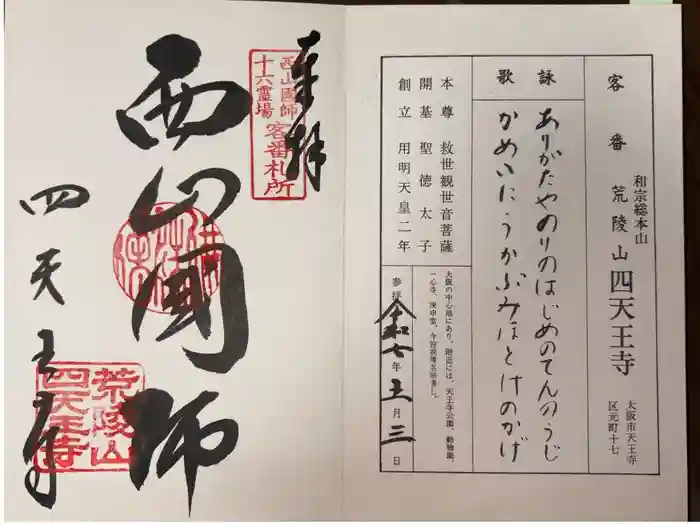 客番 荒陵山 四天王寺
和宗総本山
大阪市天王寺
区元町十七
詠歌
ありがたやのりのはじめのてんのうじ
かめいにうかぶみほとけのかげ
本尊 救世観世音菩薩
開基 聖徳太子
創立 用明天皇二年
大阪の中心地にあり、附近には、天王寺公園、動物園、
一心寺、庚申堂、今宮戎等名所多し。
参拝 令和七年 十一月 三日
奉拝
西山国師
十六霊場
客番札所
西山國師
四天王寺
荒陵山
四天王寺